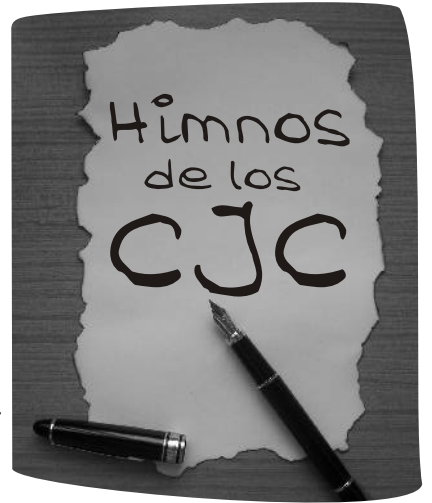 Himnos
de los
CJC